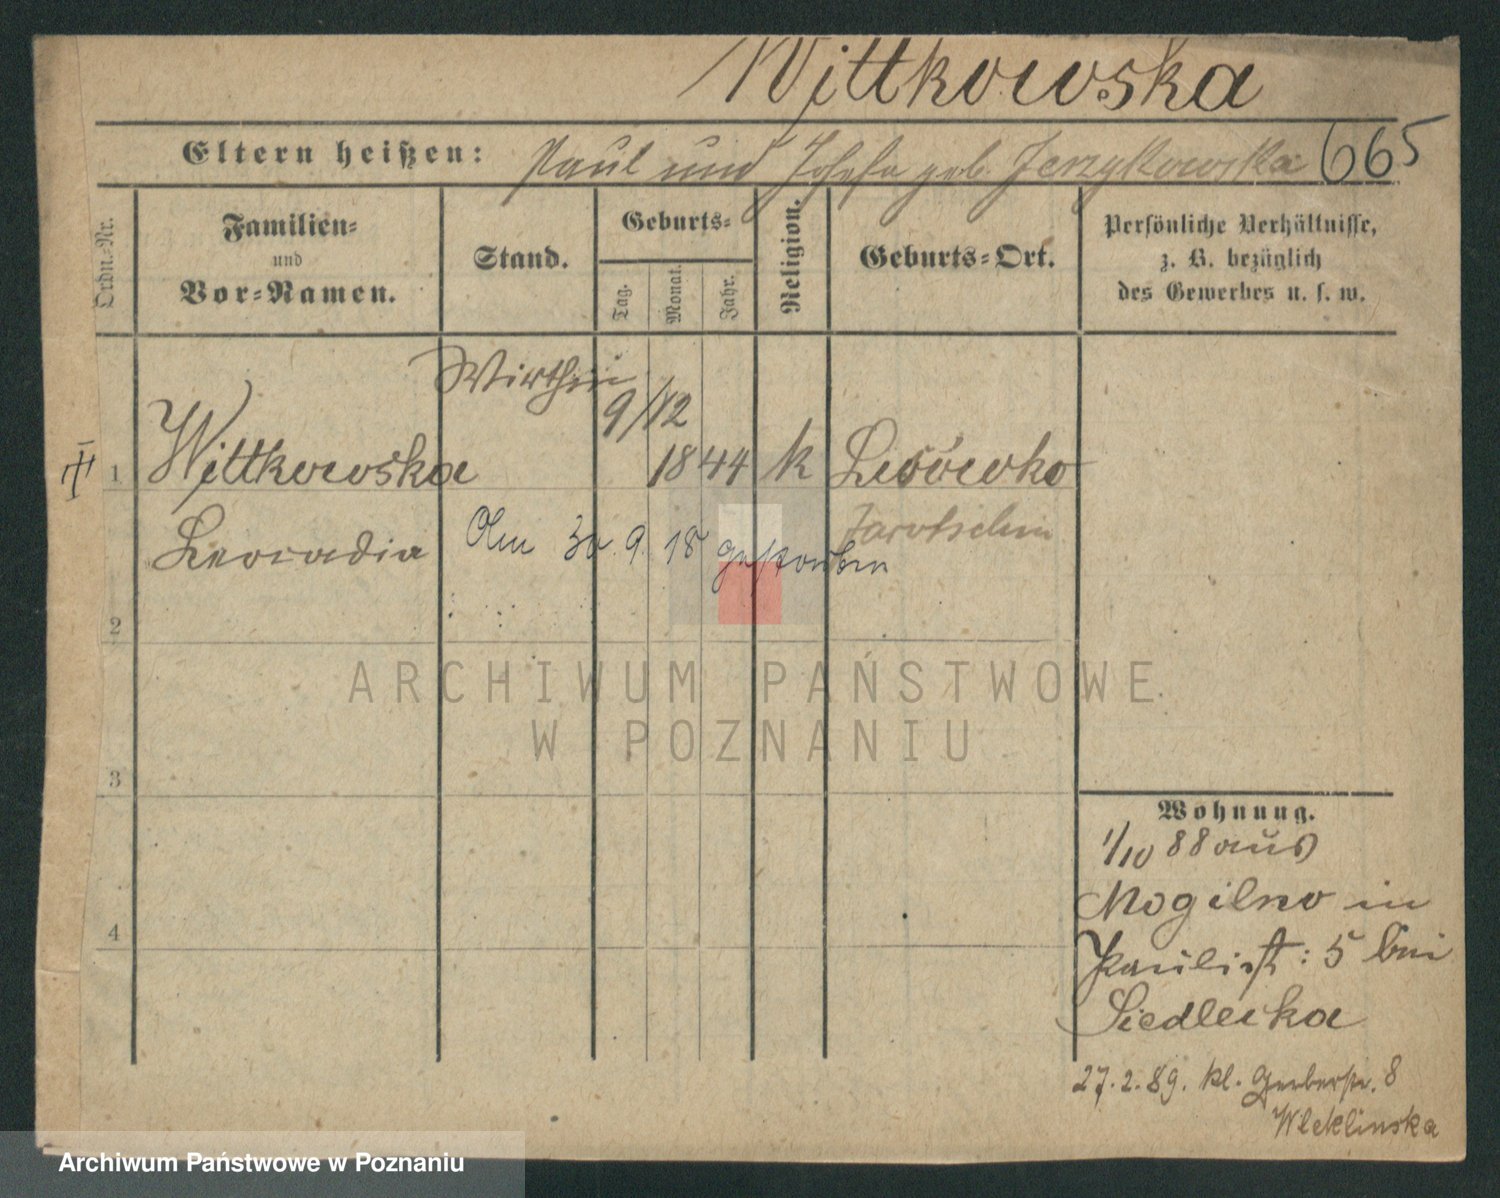 Wittkowska
Eltern heißen: Paul und Josefa geb. Jerzykowska 665
Ordn.-Nr.
Familien-
und
Vor-Namen.
Stand.
Geburts-
Tag.
Monat.
Jahr.
Religion.
Geburts-Ort.
Persönliche Verhältnisse,
z. B. bezüglich
des Gewerbes u. s. w.
Wirthin
9/12
1 Wittkowska 1844 k
Leocadia Am 30. 9. 18 gestorben Jarotschin
2
3
4
Wohnung.
1/10 88 aus
Mogilno in
Paulist: 5 bei
Siedlecka
27. 2. 89. kl. Gerberstr. 8
Wleklinska
ARCHIWUM PAŃSTWOWE
W POZNANIU
Archiwum Państwowe w Poznaniu